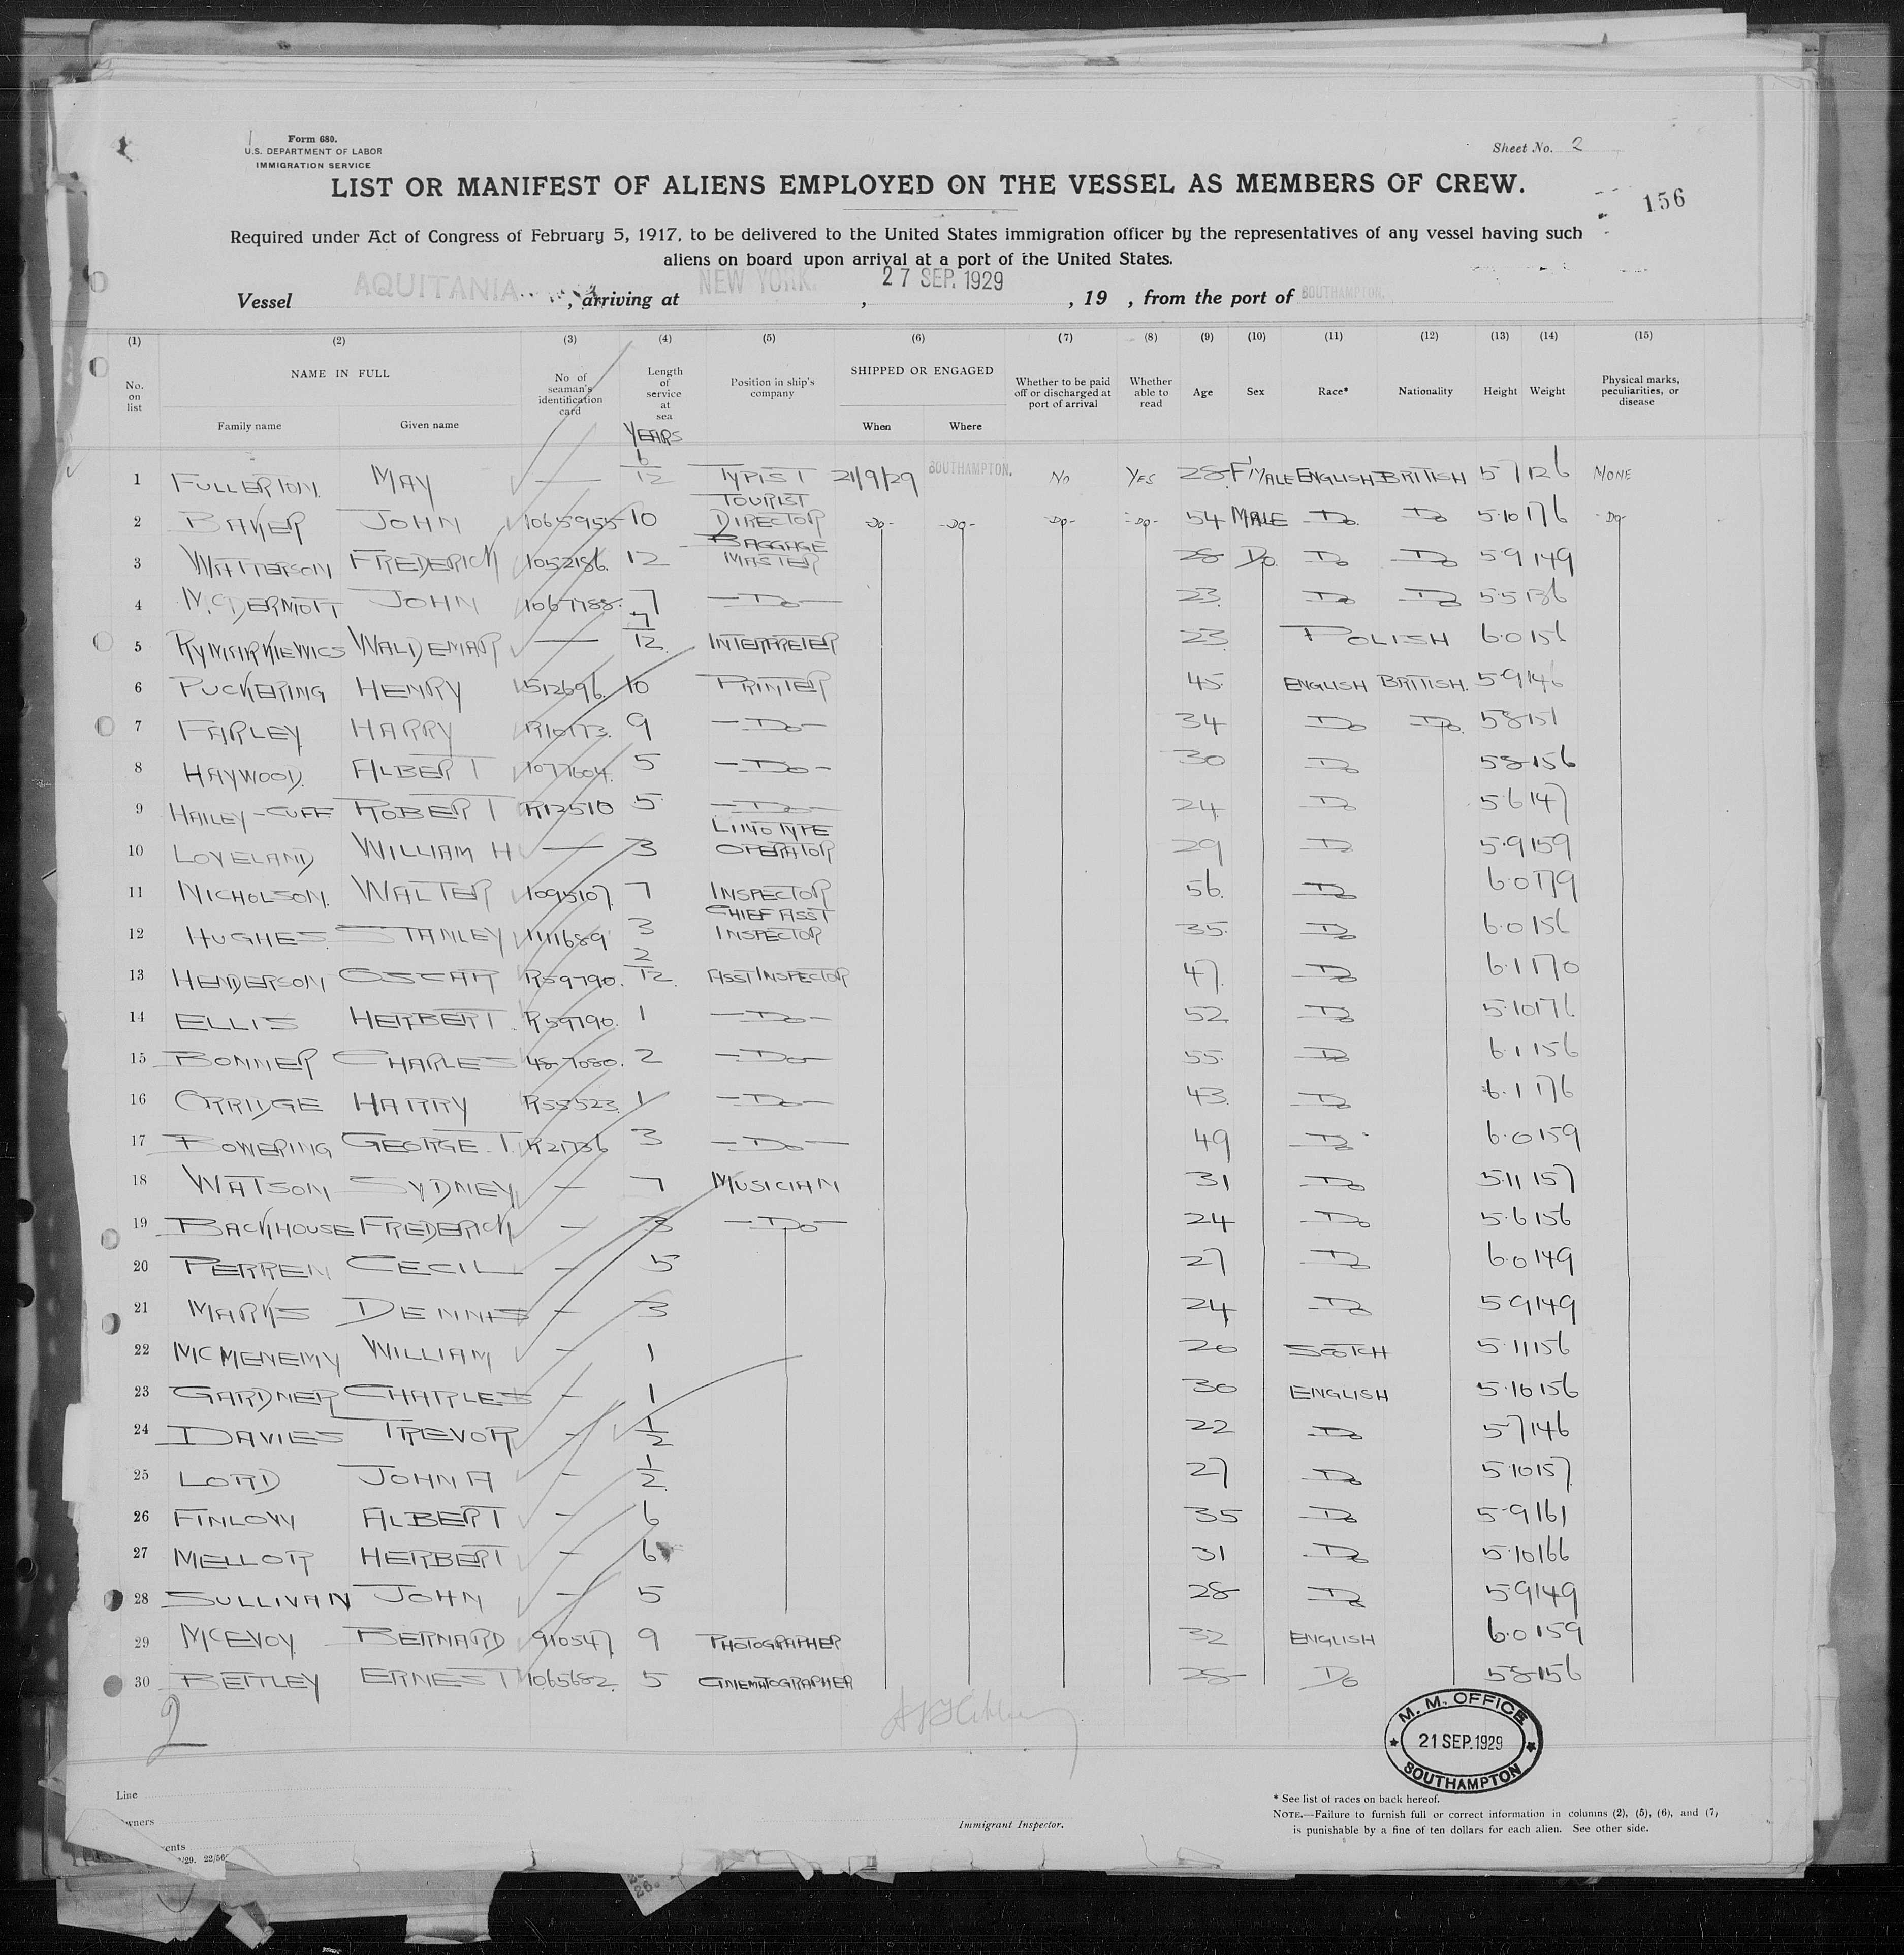 Form 680.
U.S. DEPARTMENT OF LABOR
IMMIGRATION SERVICE
Sheet No. 2
LIST OR MANIFEST OF ALIENS EMPLOYED ON THE VESSEL AS MEMBERS OF CREW.
156
Required under Act of Congress of February 5, 1917, to be delivered to the United States immigration officer by the representatives of any vessel having such
aliens on board upon arrival at a port of the United States.
Vessel AQUITANIA, arriving at NEW YORK, 27 SEP. 1929, 19 , from the port of SOUTHAMPTON.
(1) (2) (3) (4) (5) (6) (7) (8) (9) (10) (11) (12) (13) (14) (15)
No. on list NAME IN FULL Family name Given name No of seaman's identification card Length of service at sea YEARS Position in ship's company SHIPPED OR ENGAGED When Where Whether to be paid off or discharged at port of arrival Whether able to read Age Sex Race* Nationality Height Weight Physical marks, peculiarities, or disease
1 FULLERTON. MAY — 6/12 TYPIST 21/9/29 SOUTHAMPTON. NO YES 28 F'MALE ENGLISH BRITISH 5 7 126 NONE
2 BAKER JOHN 1065955 10 TOURIST DIRECTOR -Do- -Do- -Do- -Do- 54 MALE Do Do 5.10 176 -Do-
3 WATTERSON FREDERICK 1052186. 12 BAGGAGE MASTER 28 Do. Do Do 5.9 149
4 McDERMOTT JOHN 1067788. 7 —Do— 23. Do Do 5.5 136
5 WALDEMAR — 7/12 INTERPRETER 23. POLISH 6.0 156
6 PUCKERING HENRY 512696. 10 PRINTER 45. ENGLISH BRITISH. 5.9 146
7 FARLEY HARRY R10173. 9 —Do— 34 Do Do. 5 8 151
8 HAYWOOD. ALBERT 1077604. 5 —Do— 30 Do 5 8 156
9 HAILEY-CUFF ROBERT R12510 5 —Do— 24 Do 5.6 147
10 LOVELAND WILLIAM H — 3 LINOTYPE OPERATOR 29 Do 5.9 159
11 NICHOLSON. WALTER 1095107 7 INSPECTOR 56. Do 6.0 179
12 HUGHES. STANLEY 1111689 3 CHIEF ASST INSPECTOR 35. Do 6.0 156
13 HENDERSON OSCAR R59790. 2/12. ASST INSPECTOR 47. Do 6.1 170
14 ELLIS HERBERT R59190. 1 —Do— 52 Do 5.10 176
15 BONNER CHARLES 487080. 2 —Do— 55. Do 6.1 156
16 ORRIDGE HARRY R55523. 1 —Do— 43. Do 6.1 176
17 BOWERING GEORGE. T. R21736 3 —Do— 49 Do 6.0 159
18 WATSON SYDNEY — 7 MUSICIAN 31 Do 5.11 157
19 BACKHOUSE FREDERICK — 3 —Do— 24 Do 5.6 156
20 PERREN CECIL — 5 27 Do 6.0 149
21 MARKS DENNIS — 3 24 Do 5 9 149
22 MCMENEMY WILLIAM — 1 20 SCOTCH 5.11 156
23 GARDNER CHARLES — 1 30 ENGLISH 5.10 156
24 DAVIES TREVOR — 1/2 22 Do 5 7 146
25 LORD JOHN A — 1/2 27 Do 5.10 157
26 FINLOW ALBERT — 6 35 Do 5.9 161
27 MELLOR HERBERT — 6 31 Do 5.10 166
28 SULLIVAN JOHN — 5 28 Do 5.9 149
29 MCEVOY. BERNARD 910547. 9 PHOTOGRAPHER 32 ENGLISH 6.0 159
30 BETTLEY ERNEST 1065682. 5 CINEMATOGRAPHER 28 Do 5 8 156
2
M. M. OFFICE
21 SEP. 1929
SOUTHAMPTON
Line
wners
ents
/29. 22/56
Immigrant Inspector.
* See list of races on back hereof.
NOTE.—Failure to furnish full or correct information in columns (2), (5), (6), and (7)
is punishable by a fine of ten dollars for each alien. See other side.